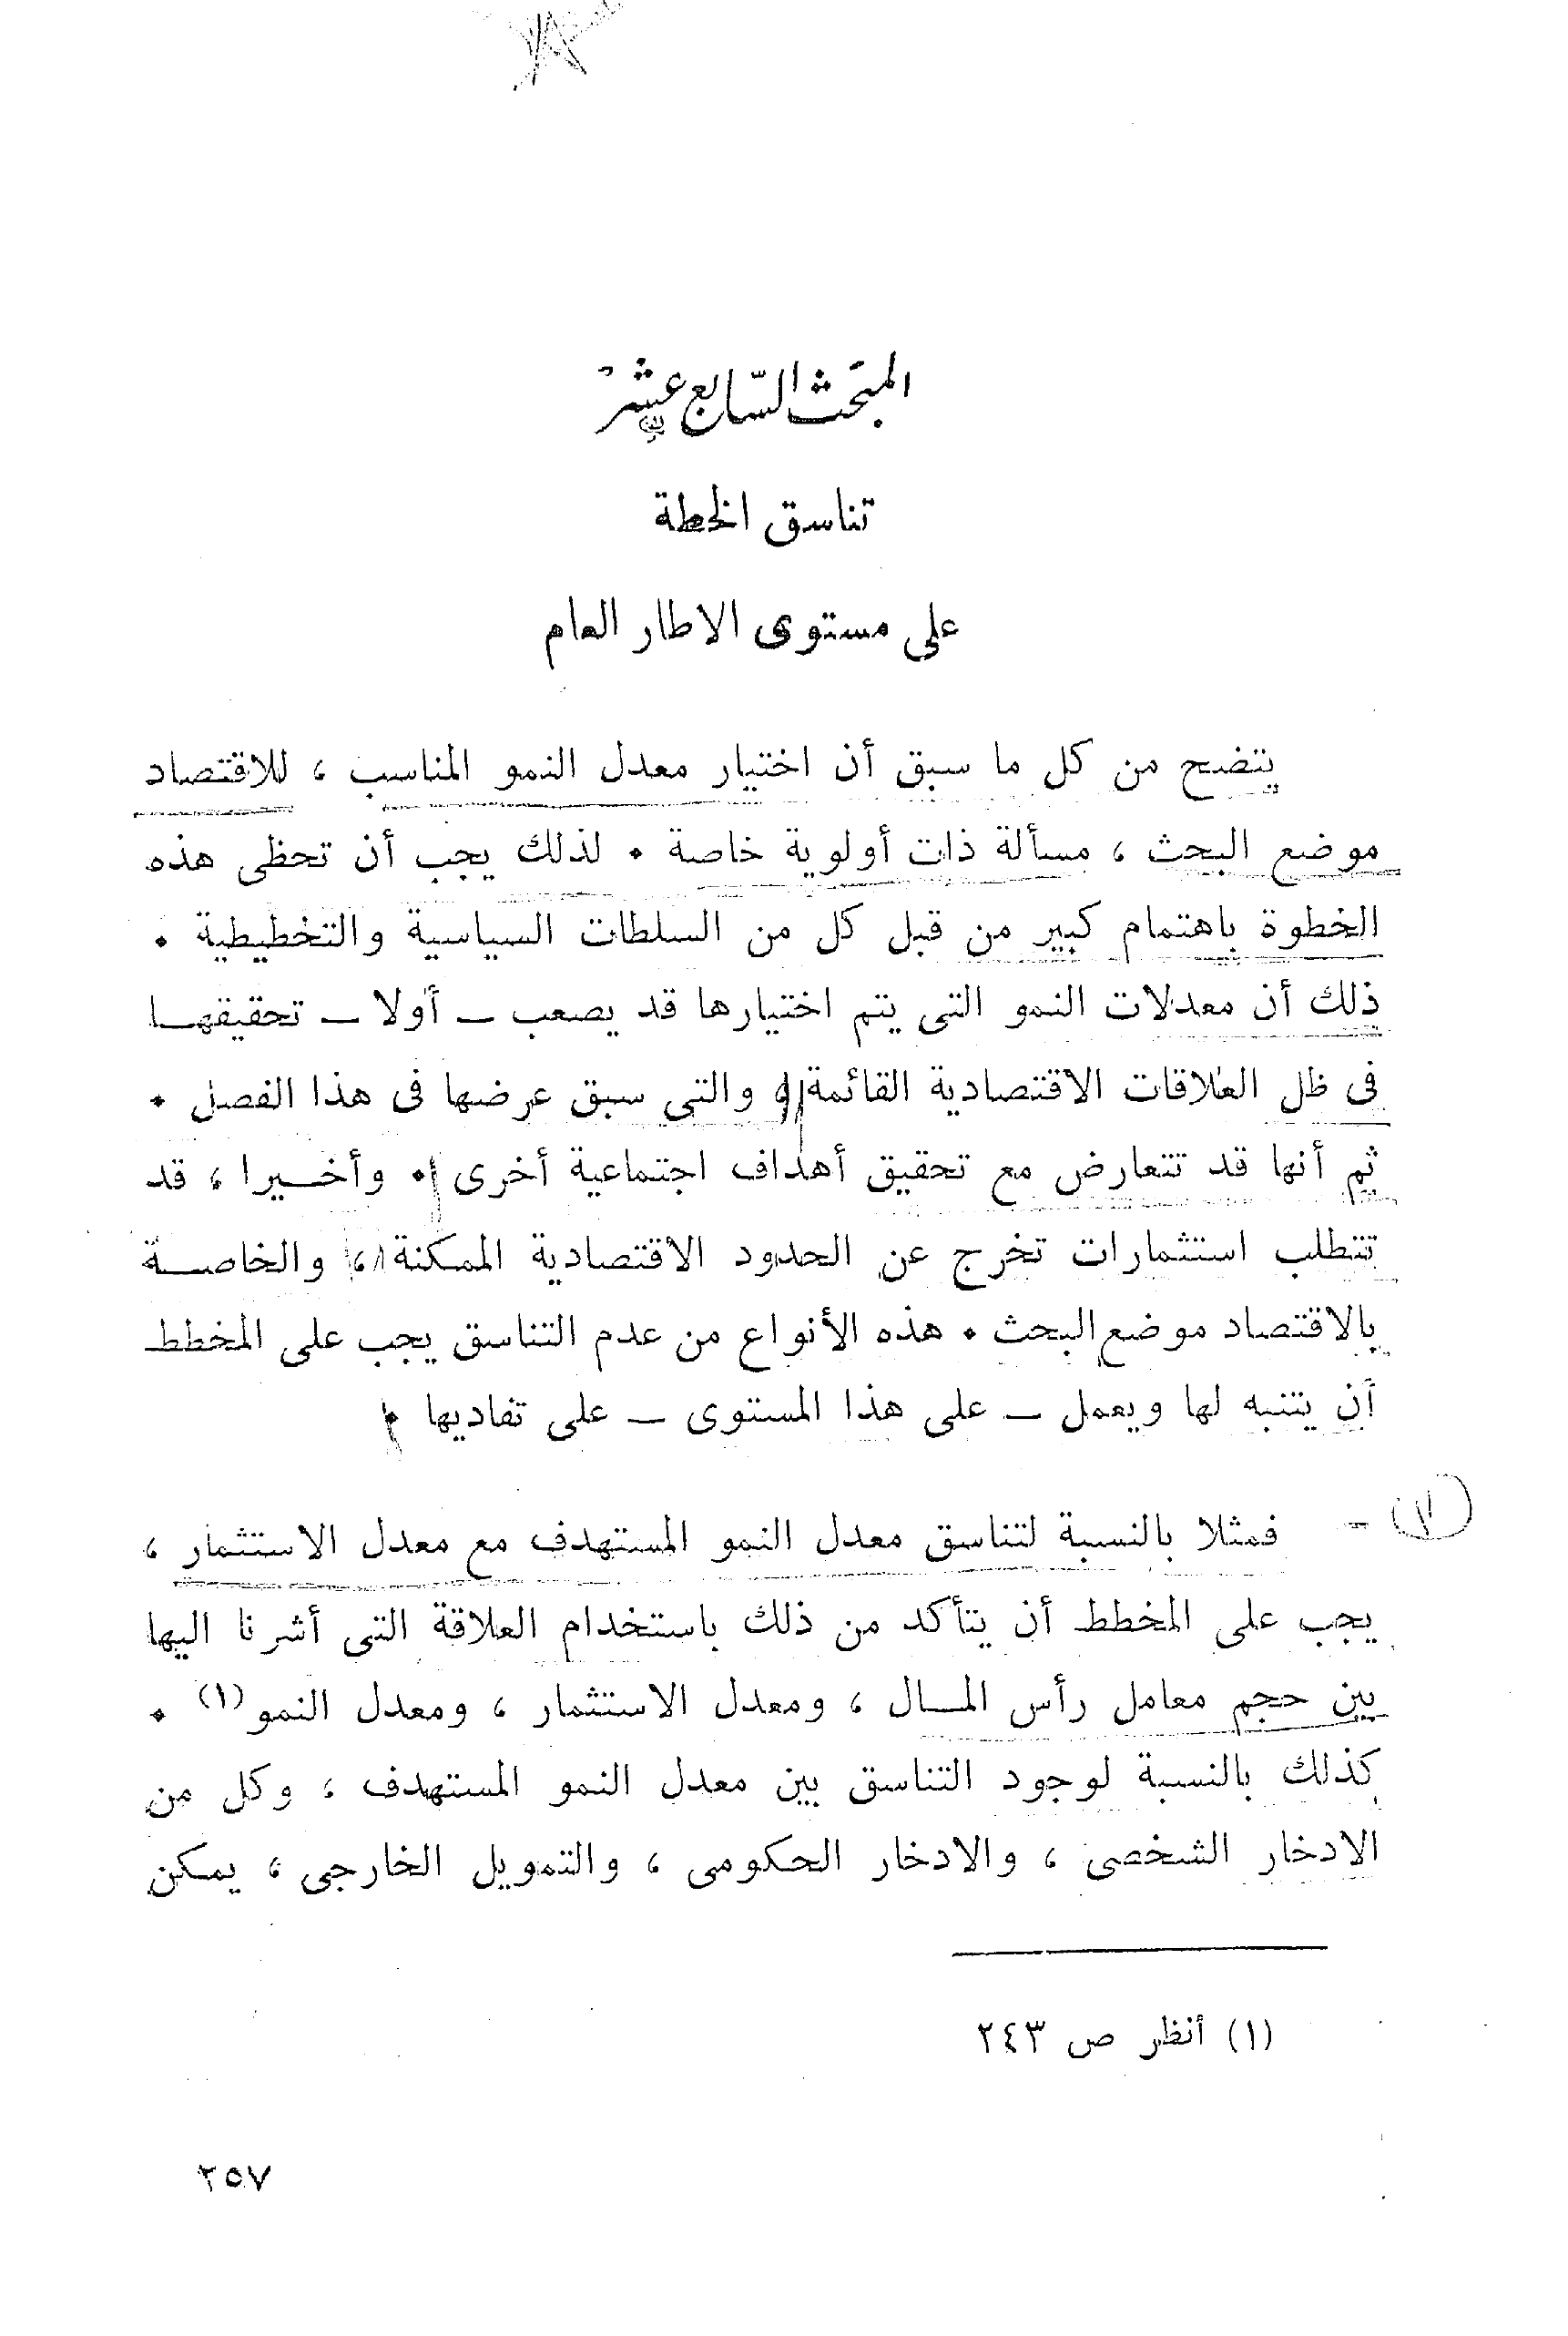 المبحث السابع عشر
تناسق الخطة
على مستوى الاطار العام
يتضح من كل ما سبق أن اختيار معدل النمو المناسب ، للاقتصاد
موضع البحث ، مسألة ذات أولوية خاصة • لذلك يجب أن تحظى هذه
الخطوة باهتمام كبير من قبل كل من السلطات السياسية والتخطيطية •
ذلك أن معدلات النمو التى يتم اختيارها قد يصعب – أولا – تحقيقهـا
فى ظل العلاقات الاقتصادية القائمة ، والتى سبق عرضها فى هذا الفصل •
ثم أنها قد تتعارض مع تحقيق أهداف اجتماعية أخرى • وأخـيرا ، قد
تتطلب استثمارات تخرج عن الحدود الاقتصادية الممكنة ، والخاصـة
بالاقتصاد موضع البحث • هذه الأنواع من عدم التناسق يجب على المخطط
أن يتنبه لها ويعمل – على هذا المستوى – على تفاديها •
فمثلا بالنسبة لتناسق معدل النمو المستهدف مع معدل الاستثمار ،
يجب على المخطط أن يتأكد من ذلك باستخدام العلاقة التى أشرنا اليها
بين حجم معامل رأس المـال ، ومعدل الاستثمار ، ومعدل النمو(١) •
كذلك بالنسبة لوجود التناسق بين معدل النمو المستهدف ، وكل من
الادخار الشخصى ، والادخار الحكومى ، والتمويل الخارجى ، يمكن
(١) أنظر ص ٢٤٣
٢٥٧